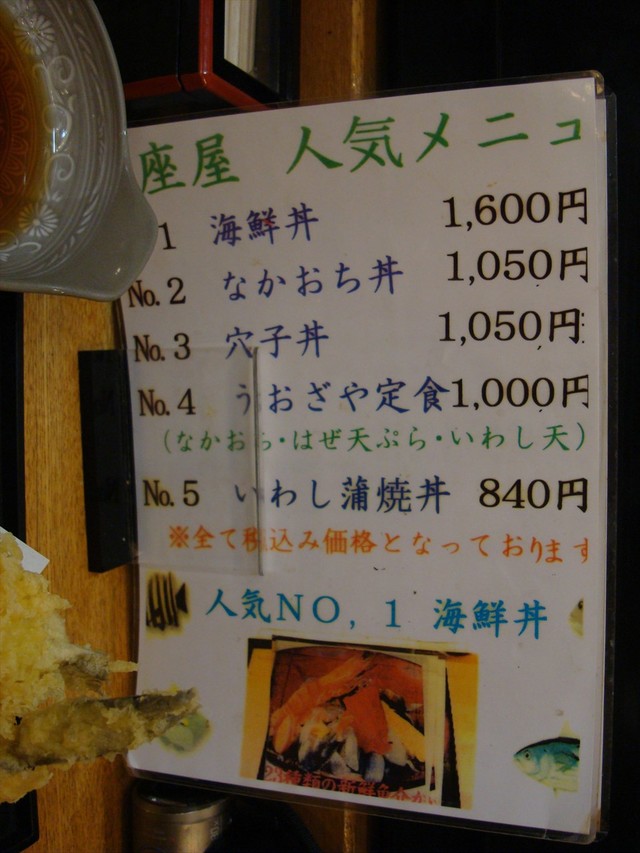 座屋 人気メニュ
1 海鮮丼 1,600円
No.2 なかおち丼 1,050円
No.3 穴子丼 1,050円
No.4 うおざや定食 1,000円
(なかおち・はぜ天ぷら・いわし天)
No.5 いわし蒲焼丼 840円
※全て税込み価格となっております
人気NO,1 海鮮丼